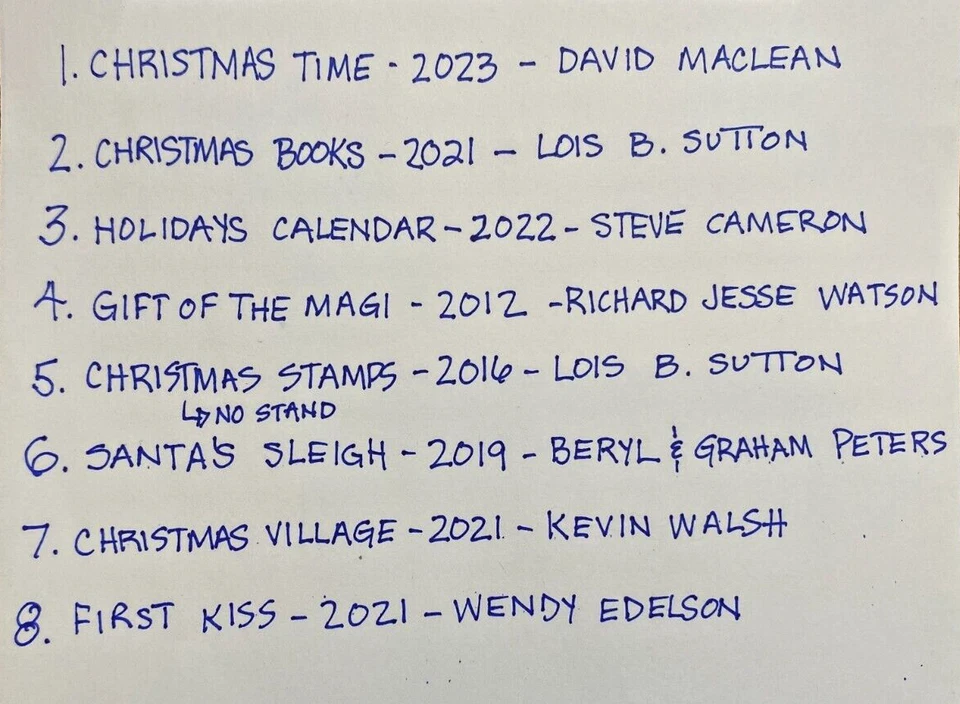 1. CHRISTMAS TIME - 2023 - DAVID MACLEAN
2. CHRISTMAS BOOKS - 2021 - LOIS B. SUTTON
3. HOLIDAYS CALENDAR - 2022 - STEVE CAMERON
4. GIFT OF THE MAGI - 2012 - RICHARD JESSE WATSON
5. CHRISTMAS STAMPS - 2016 - LOIS B. SUTTON
↳ NO STAND
6. SANTA'S SLEIGH - 2019 - BERYL & GRAHAM PETERS
7. CHRISTMAS VILLAGE - 2021 - KEVIN WALSH
8. FIRST KISS - 2021 - WENDY EDELSON